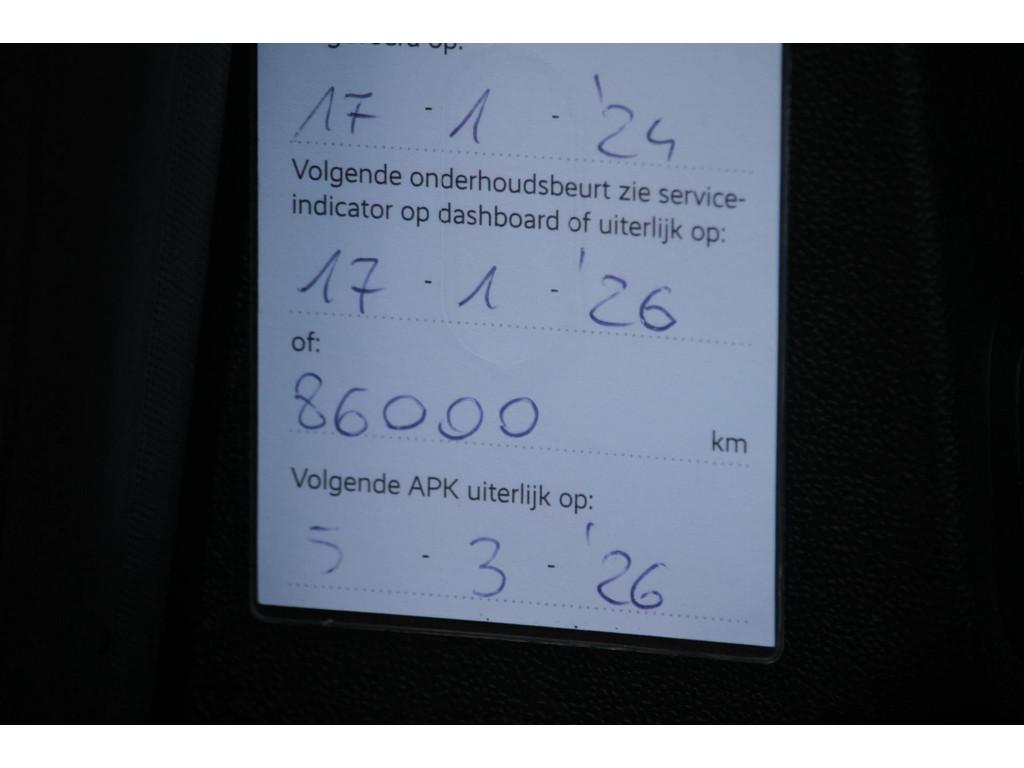 op:
17 - 1 - '24
Volgende onderhoudsbeurt zie service-
indicator op dashboard of uiterlijk op:
17 - 1 - '26
of:
86000 km
Volgende APK uiterlijk op:
5 - 3 - '26